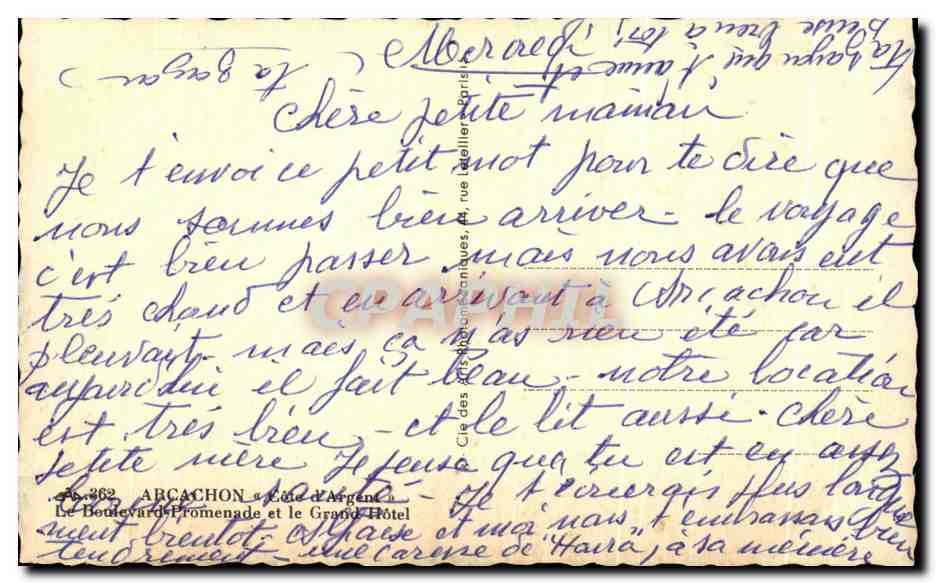 Mercredi
chère petite maman
Je t'envoi ce petit mot pour te dire que
nous sommes bien arriver - le voyage
c'est bien passer. mais nous avons eut
très chaud et en arrivant à Arcachon il
pleuvait. mais ça n'as rien été car
aujourdui il fait beau - notre location
est très bien, - et le lit aussi. chère
petite mère Je pense que tu est en assez
santé - Je t'écrirais plus
ment bientot. et moi nous t'embrassons bien
tendrement - une caresse de "Haira", à sa mémère
ta Gazou qui t'aime et
pense bien a toi,
ta Gazou
CPAPHIL
362 ARCACHON « Côte d'Argent »
Le Boulevard-Promenade et le Grand Hôtel
Cie des Arts Photomécaniques, 44, rue Letellier, Paris